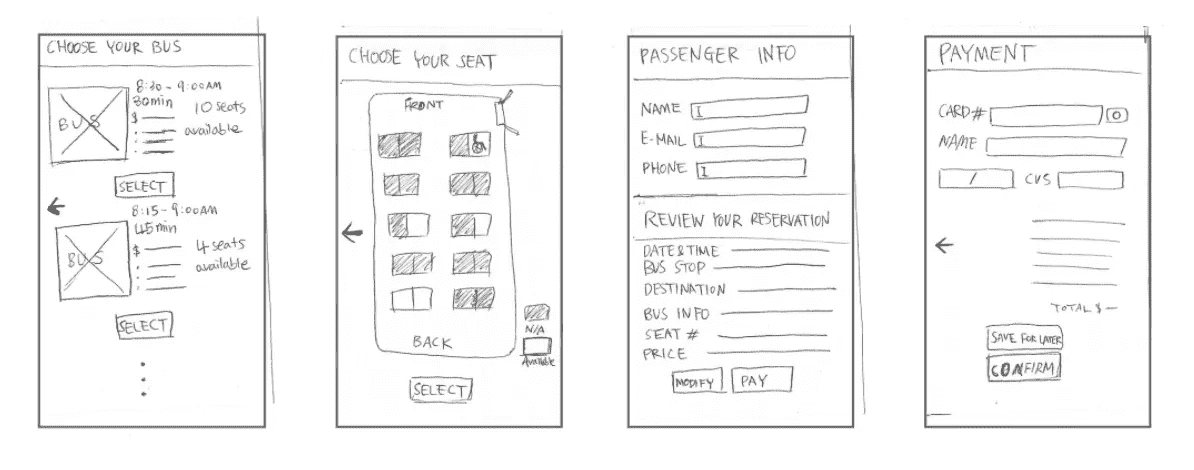 CHOOSE YOUR BUS
BUS
8:30 - 9:00AM
30min
10 seats
available
$
SELECT
BUS
8:15 - 9:00AM
45min
4 seats
available
$
SELECT
CHOOSE YOUR SEAT
FRONT
BACK
N/A
Available
SELECT
PASSENGER INFO
NAME
E-MAIL
PHONE
REVIEW YOUR RESERVATION
DATE & TIME
BUS STOP
DESTINATION
BUS INFO
SEAT #
PRICE
MODIFY PAY
PAYMENT
CARD#
NAME
/ CVS
TOTAL $ —
SAVE FOR LATER
CONFIRM